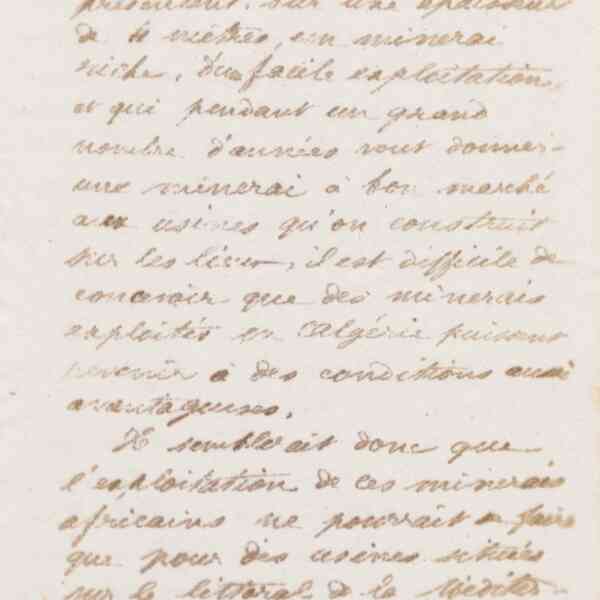 présentent, sur une épaisseur
de 4 mètres, un minerai
riche, d'une facile exploitation
et qui pendant un grand
nombre d'années vont donner
une minerai à bon marché
aux usines qu'on construit
sur les lieux, il est difficile de
concevoir que des minerais
exploités en Algérie puissent
revenir à des conditions aussi
avantageuses.
Il semblerait donc que
l'exploitation de ces minerais
africains ne pourrait se faire
que pour des usines situées
sur le littoral de la Méditer-